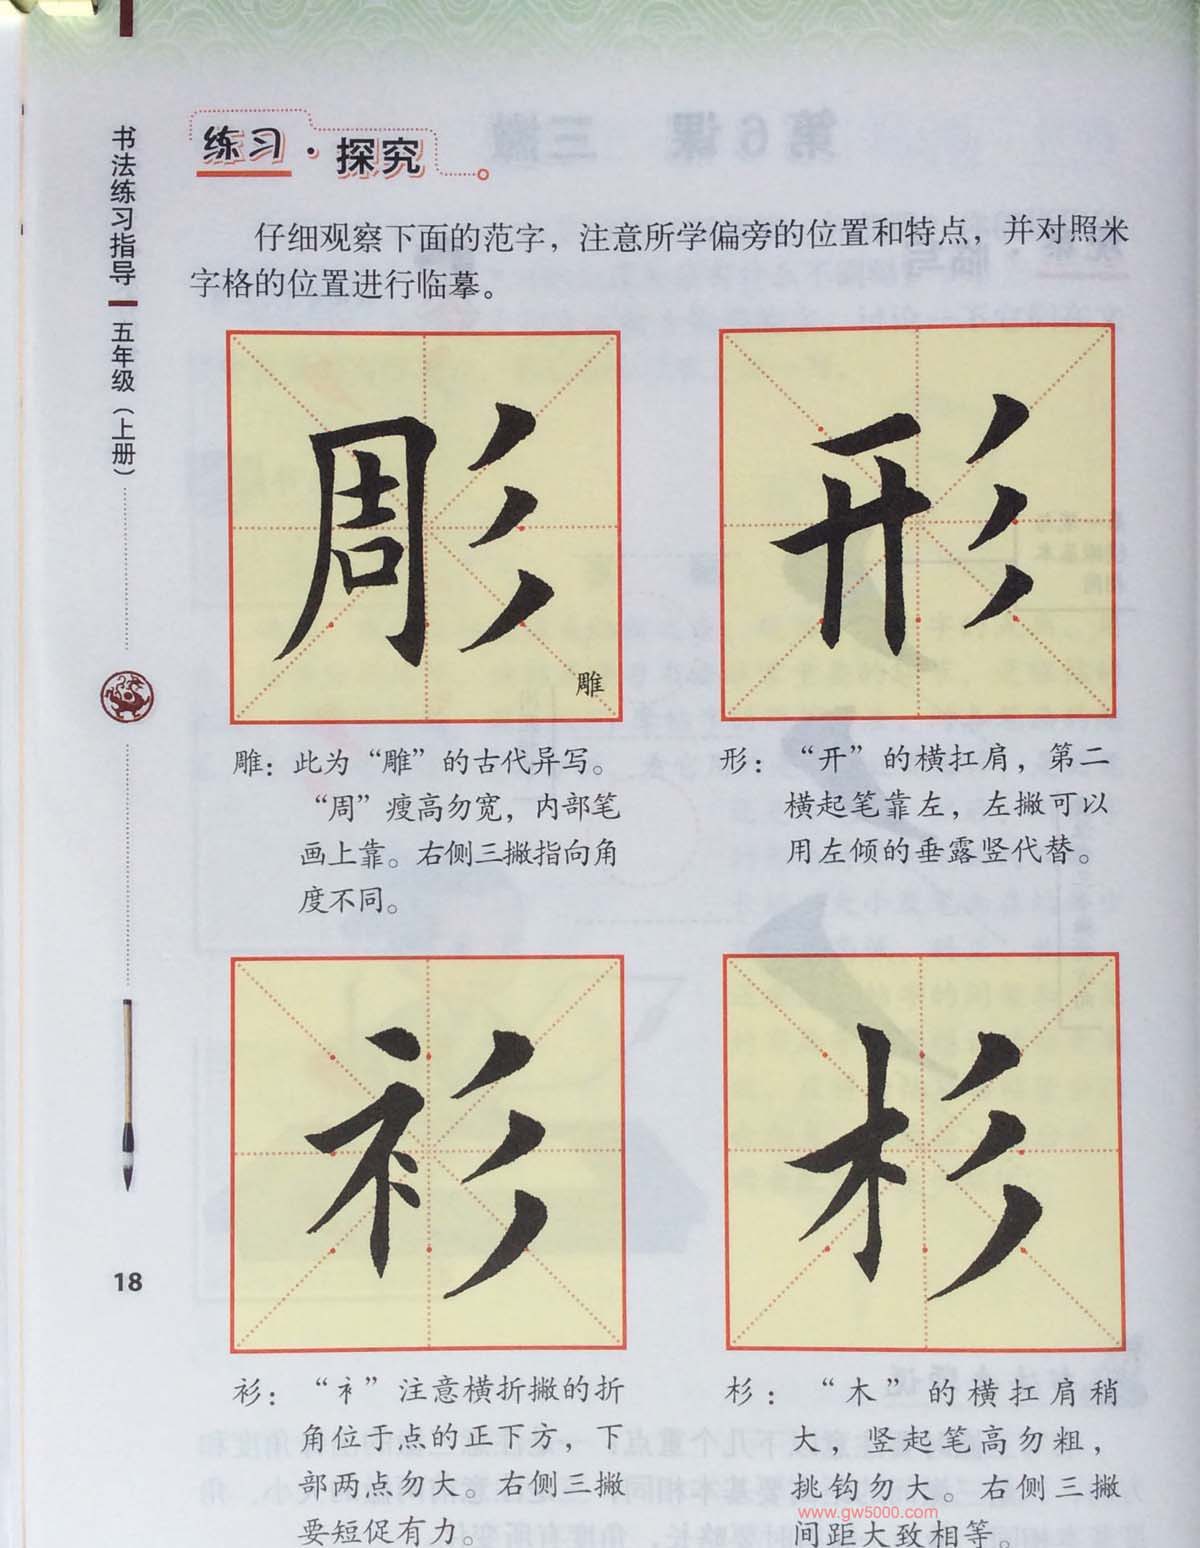 书法练习指导
五年级（上册）
18
练习·探究
仔细观察下面的范字，注意所学偏旁的位置和特点，并对照米
字格的位置进行临摹。
彫
雕
形
雕：此为“雕”的古代异写。
“周”瘦高勿宽，内部笔
画上靠。右侧三撇指向角
度不同。
形：“开”的横扛肩，第二
横起笔靠左，左撇可以
用左倾的垂露竖代替。
衫
杉
衫：“衤”注意横折撇的折
角位于点的正下方，下
部两点勿大。右侧三撇
要短促有力。
杉：“木”的横扛肩稍
大，竖起笔高勿粗，
挑钩勿大。右侧三撇
间距大致相等。
www.gw5000.com